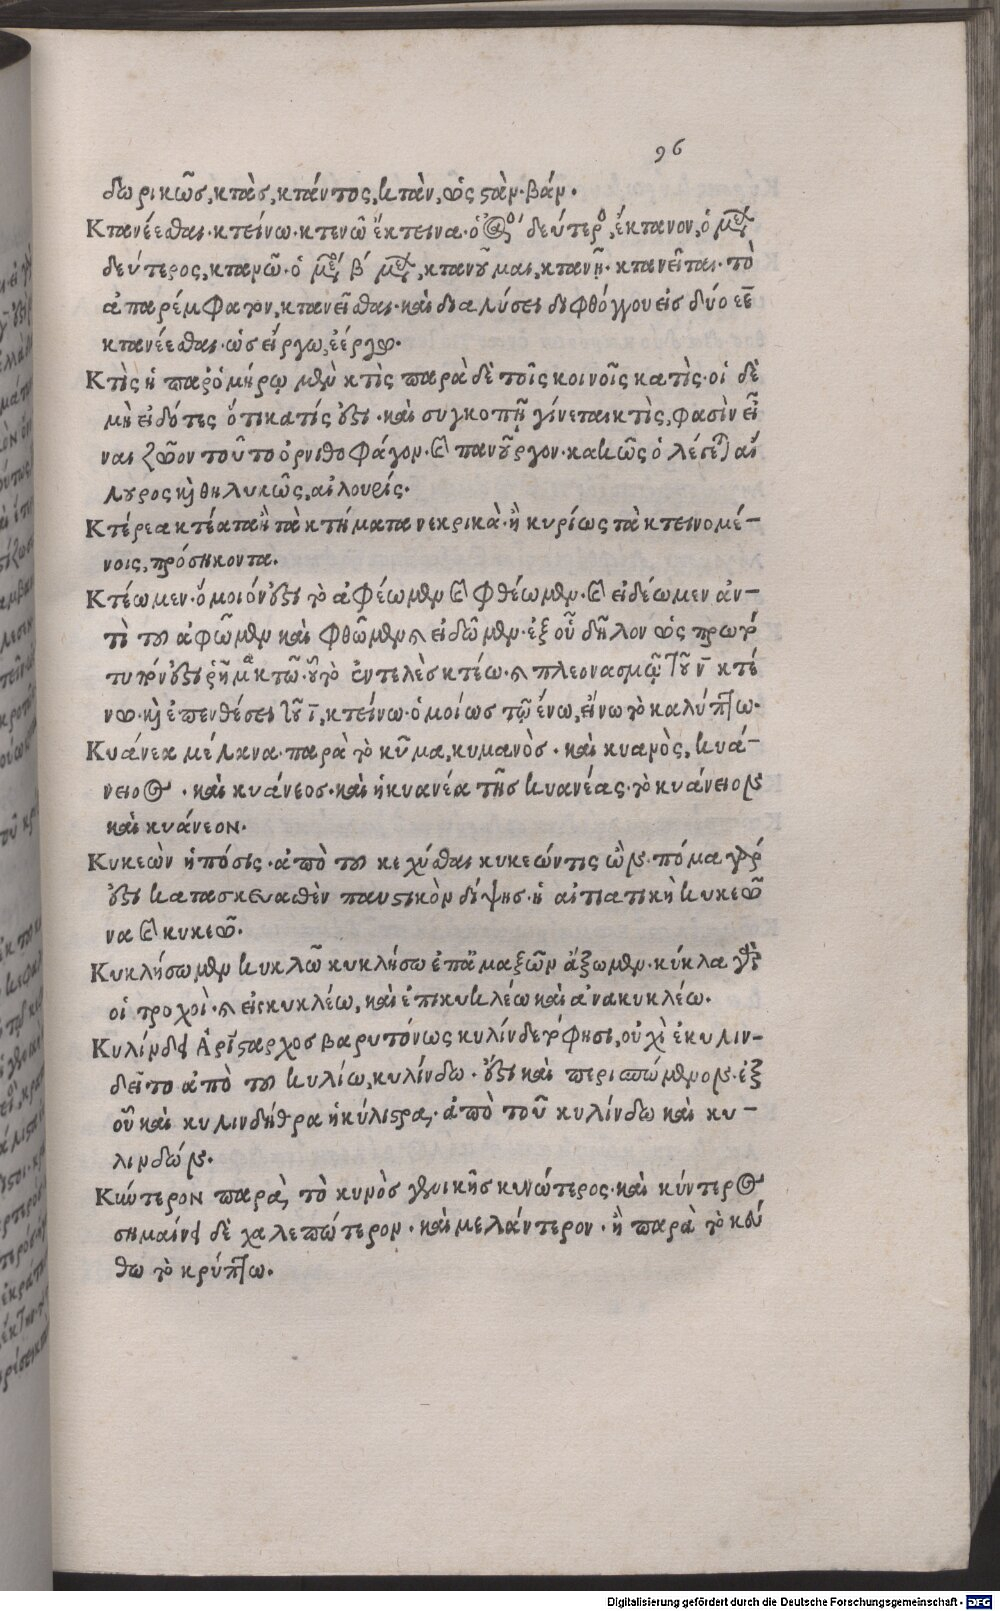 96
δωρικῶς, κτὰς, κτάντος, κτὰν, ὡς στὰν· βάν.
Κτανέεσθαι· κτείνω· κτενῶ ἔκτεινα· ὁ δεύτερος, ἔκτανον, ὁ
δεύτερος, κτανῶ· ὁ β΄ κτανοῦμαι, κτανῇ· κτανεῖται· τὸ
ἀπαρέμφατον, κτανεῖσθαι· καὶ διαλύσει διφθόγγου εἰς δύο εε
κτανέεσθαι· ὡς εἴργω, ἐέργω.
Κτὶς ἡ παρ' ὁμήρῳ μὲν κτὶς παρὰ δὲ τοῖς κοινοῖς κατὶς· οἱ δὲ
μὴ εἰδότες ὅτι κατίς ἐστι· καὶ συγκοπῇ γίνεται κτὶς, φασὶν εἶ
ναι ζῶον τοῦτο ὀρνιθοφάγον· καὶ πανοῦργον· κακῶς ὁ λέγεται αἴ
λυρος καὶ θηλυκῶς, αἰλουρίς.
Κτέρεα κτέατα ἢ τὰ κτήματα νεκρικὰ· ἢ κυρίως τὰ κτεινομέ-
νοις, πρόσηκοντα.
Κτέωμεν· ὅμοιόν ἐστι τὸ ἀφέωμεν καὶ φθέωμεν· καὶ εἰδέωμεν ἀν-
τὶ τοῦ ἀφῶμεν καὶ φθῶμεν καὶ εἰδῶμεν· ἐξ οὗ δῆλον ὡς πρωτό
τυπόν ἐστι ῥῆμα κτῶ· οὗ τὸ ἐντελὲς κτέω· καὶ πλεονασμῷ τοῦ ν κτέ
νω· καὶ ἐπενθέσει τοῦ ι, κτείνω· ὁμοίως τῷ ἕνω, εἵνω τὸ καλύπτω.
Κυάνεα μέλανα· παρὰ τὸ κῦμα, κυμανὸς· καὶ κυανὸς, κυά-
νειος· καὶ κυάνεος· καὶ ἡ κυανέα τῆς κυανέας· τὸ κυάνειον
καὶ κυάνεον.
Κυκεὼν ἡ πόσις· ἀπὸ τοῦ κεχύσθαι κυκεών τις ὤν· πόμα γάρ
ἐστι κατασκευασθὲν παυστικὸν δίψης· ἡ αἰτιατικὴ κυκεῶ
να καὶ κυκεῶ.
Κυκλήσωμεν κυκλῶ κυκλήσω ἐπ' ἁμαξῶν ἄξωμεν· κύκλα γὰρ
οἱ τροχοὶ· καὶ εἰσκυκλέω, καὶ ἐπικυκλέω καὶ ἀνακυκλέω.
Κυλίνδει Ἀρίσταρχος βαρυτόνως κυλίνδετό φησι, οὐχὶ ἐκυλιν-
δεῖτο ἀπὸ τοῦ κυλίω, κυλίνδω· ἔστι καὶ περισπώμενον· ἐξ
οὗ καὶ κυλινδήθρα ἡ κύλιστρα, ἀπὸ τοῦ κυλίνδω καὶ κυ-
λινδών.
Κυντερον παρὰ, τὸ κυνὸς γενικῆς κυνώτερος· καὶ κύντερος
σημαίνει δὲ χαλεπώτερον· καὶ μελάντερον· ἢ παρὰ τὸ κεύ
θω τὸ κρύπτω.
Digitalisierung gefördert durch die Deutsche Forschungsgemeinschaft - DFG